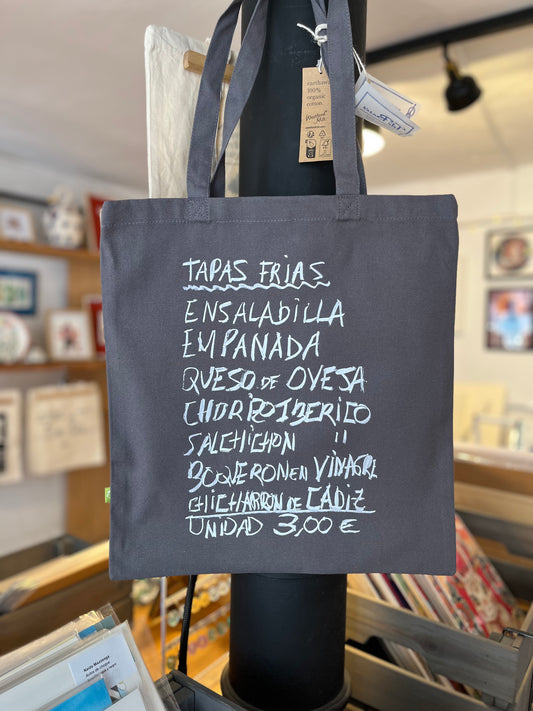 earthaware
100%
organic
cotton
TAPAS FRIAS
ENSALADILLA
EMPANADA
QUESO DE OVEJA
CHORIZO IBERICO
SALCHICHON "
BOQUERON EN VINAGRE
CHICHARRON DE CÁDIZ
UNIDAD 3,00 €